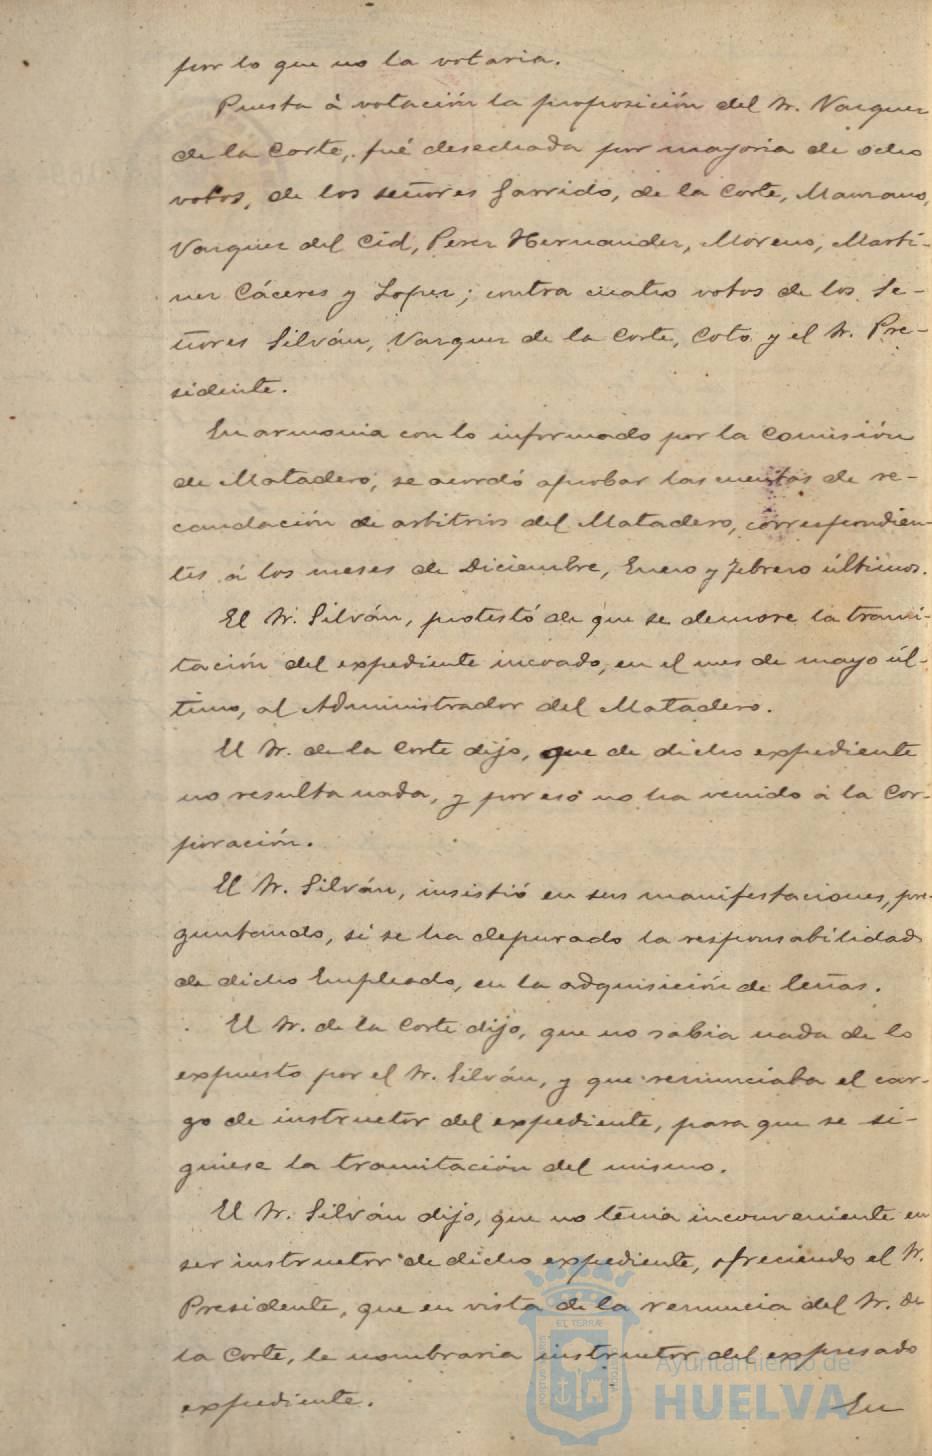 por lo que no la votaria.
Puesta á votación la proposición del Sr. Vazquez
de la Corte, fué desechada por mayoria de ocho
votos, de los señores Garrido, de la Corte, Manzano,
Vazquez del Cid, Perez Hernandez, Moreno, Marti-
nez Cáceres y Lopez; contra cuatro votos de los Se-
ñores Silván, Vazquez de la Corte, Coto y el Sr. Pre-
sidente.
En armonia con lo informado por la Comisión
de Matadero, se acordó aprobar las cuentas de re-
caudación de arbitrios del Matadero, correspondien-
tes á los meses de Diciembre, Enero y Febrero últimos.
El Sr. Silván, protestó de que se demore la trami-
tación del expediente incoado, en el mes de mayo úl-
timo, al Administrador del Matadero.
El Sr. de la Corte dijo, que de dicho expediente
no resulta nada, y por eso no ha venido á la Cor-
poración.
El Sr. Silván, insistió en sus manifestaciones, pre-
guntando, si se ha depurado la responsabilidad
de dicho Empleado, en la adquisición de leñas.
El Sr. de la Corte dijo, que no sabia nada de lo
expuesto por el Sr. Silván, y que renunciaba el car-
go de instructor del expediente, para que se si-
guiese la tramitación del mismo.
El Sr. Silván dijo, que no tenia inconveniente en
ser instructor de dicho expediente, ofreciendo el Sr.
Presidente, que en vista de la renuncia del Sr. de
la Corte, le nombraria instructor del expresado
expediente.
En
Ayuntamiento de
HUELVA